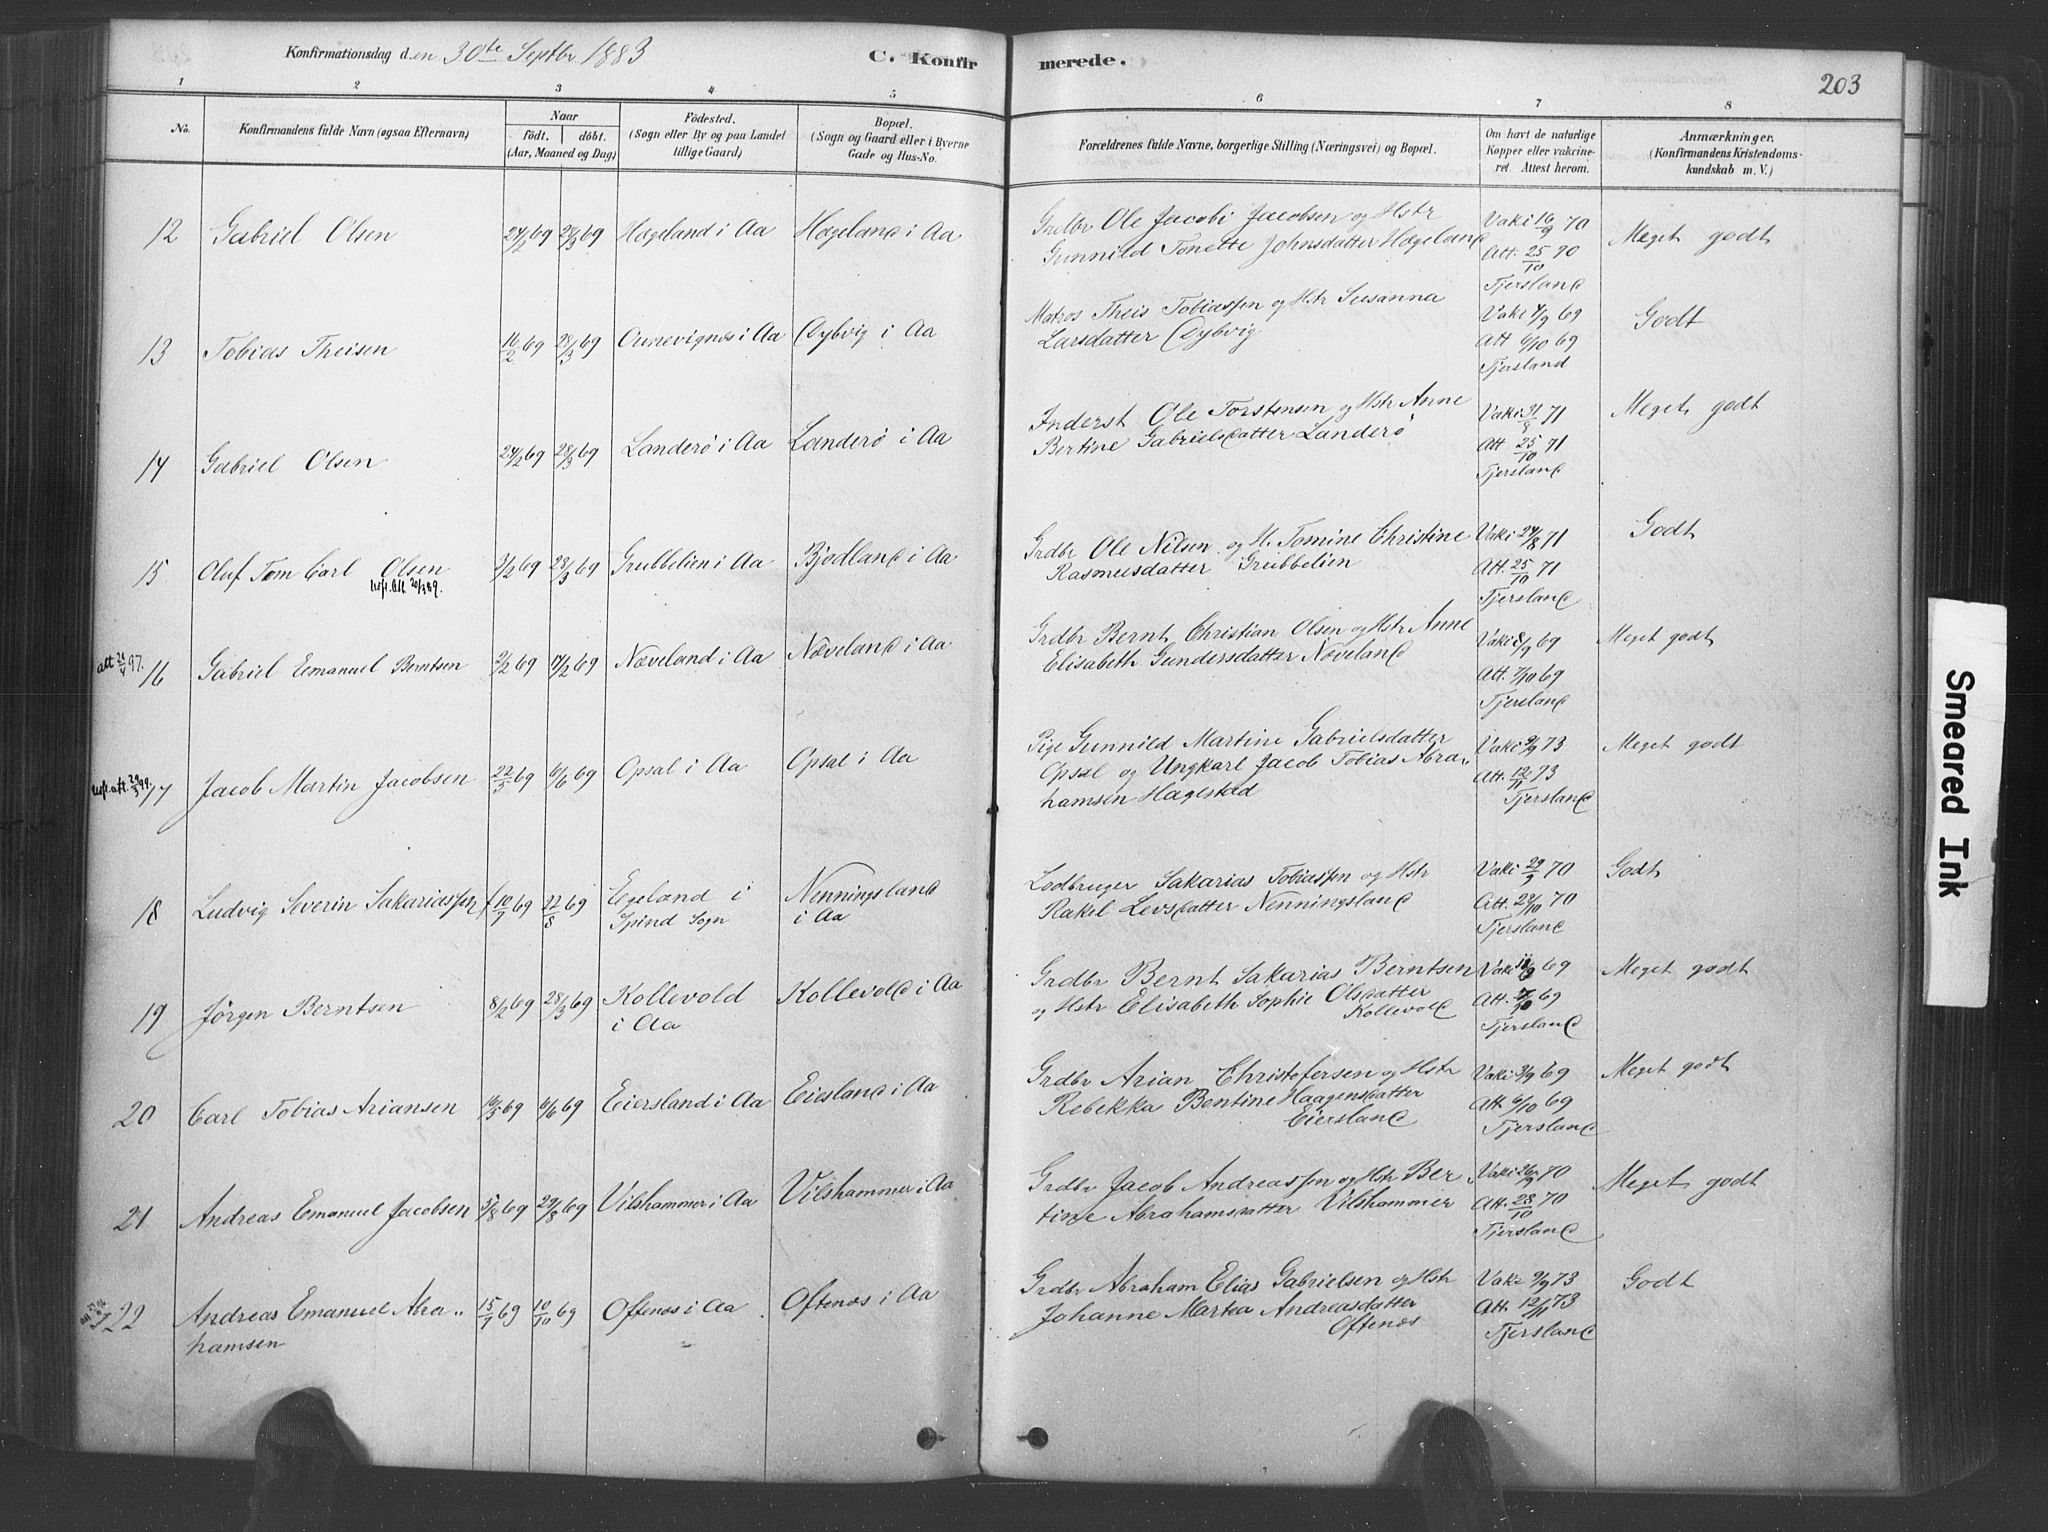 Konfirmationsdag den 30te Septbr 1883
C. Konfirmerede.
203
1 2 3 4 5 6 7 8
No.
Konfirmandens fulde Navn (ogsaa Efternavn)
Naar
födt. döbt.
(Aar, Maaned og Dag)
Födested.
(Sogn eller By og paa Landet
tillige Gaard)
Bopæl.
(Sogn og Gaard eller i Byerne
Gade og Hus-No.
Forældrenes fulde Navne, borgerlige Stilling (Næringsvei) og Bopæl.
Om havt de naturlige
Kopper eller vakcine-
ret Attest herom.
Anmærkninger.
(Konfirmandens Kristendoms-
kundskab m. V.)
12 Gabriel Olsen 24/2 69 28/3 69 Hægeland i Aa Hægeland i Aa
Grdbr Ole Jacobi Jacobsen og Hstr
Gunnild Tonette Johnsdatter Hægeland
Vaki 16/9 70
Att. 25/10 70
Tjersland
Meget godt
13 Tobias Theisen 16/2 69 28/3 69 i Aa Dybvig i Aa
Matros Theis Tobiassen og Hstr Susanna
Larsdatter Dybvig
Vaki 4/9 69
Att 6/10 69
Tjersland
Godt
14 Gabriel Olsen 24/2 69 28/3 69 Landerö i Aa Landerö i Aa
Inderst Ole Torstensen og Hstr Anne
Bertine Gabrielsdatter Landerö
Vaki 31/8 71
Att 25/10 71
Tjersland
Meget godt
15 Oluf Tom Carl Olsen 3/2 69 28/3 69 Grubbelien i Aa Bjodland i Aa
Grdbr Ole Nilsen og H. Tomine Christine
Rasmusdatter Grubbelien
Vaki 24/8 71
Att. 25/10 71
Tjersland
Godt
16 Gabriel Emanuel Berntsen 2/2 69 17/2 69 Næveland i Aa Næveland i Aa
Grdbr Bernt Christian Olsen og Hstr Anne
Elisabeth Gundersdatter Næveland
Vaki 8/9 69
Att. 7/10 69
Tjersland
Meget godt
17 Jacob Martin Jacobsen 22/5 69 6/6 69 Opsal i Aa Opsal i Aa
Pige Gunnild Martine Gabrielsdatter
Opsal og Ungkarl Jacob Tobias Abra„
hamsen Hagestad
Vaki 9/9 73
Att. 12/11 73
Tjersland
Meget godt
18 Ludvig Severin Sakariassen 10/7 69 22/8 69 Egeland i
Spind Sogn
Nenningsland
i Aa
Lodbruger Sakarias Tobiassen og Hstr
Rakel Levsdatter Nenningsland
Vaki 29/9 70
Att. 28/10 70
Tjersland
Godt
19 Jörgen Berntsen 8/2 69 28/3 69 Kollevold
i Aa
Kollevold i Aa
Grdbr Bernt Sakarias Berntsen
og Hstr Elisabeth Sophie Olsdatter
Kollevold
Vaki /9 69
Att. 7/10 69
Tjersland
Meget godt
20 Carl Tobias Ariansen 16/5 69 6/6 69 Eiersland i Aa Eiesland i Aa
Grdbr Arian Christofersen og Hstr
Rebekka Bentine Haagensdatter
Eiersland
Vaki 3/9 69
Att. 6/10 69
Tjersland
Meget godt
21 Andreas Emanuel Jacobsen 5/8 69 29/8 69 Vilshammer i Aa Vilshammer i Aa
Grdbr Jacob Andreassen og Hstr Ber„
tine Abrahamsdatter Vilshammer
Vaki 26/9 70
Att. 28/10 70
Tjersland
Meget godt
22 Andreas Emanuel Abra„
hamsen
15/7 69 10/10 69 Oftenæs i Aa Oftenæs i Aa
Grdbr Abraham Elias Gabrielsen og Hstr
Johanne Martea Andreasdatter
Oftenæs
Vaki 9/9 73
Att. 12/11 73
Tjersland
Godt
Smeared Ink